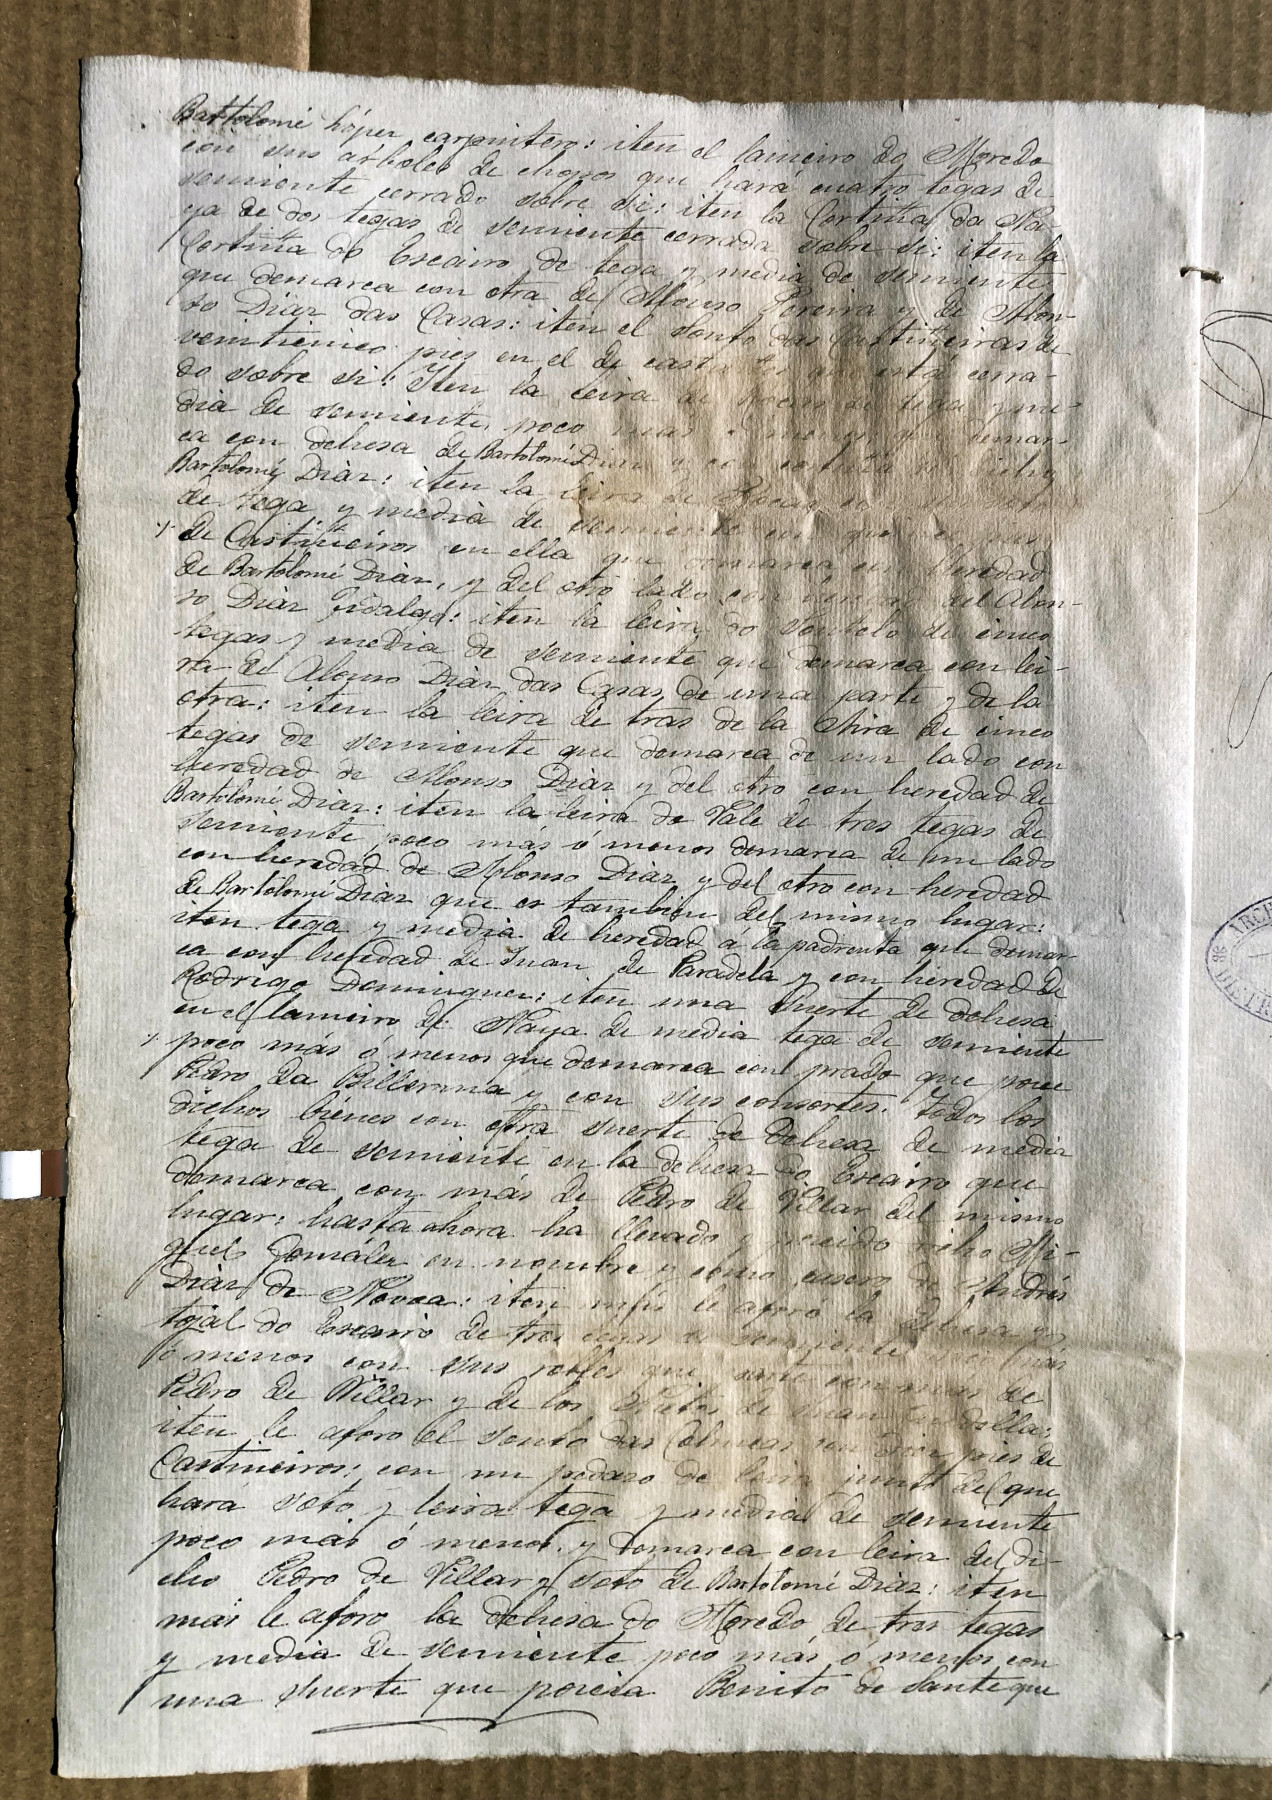 Bartolomé López carpintero: iten el lameiro do Moredo
con sus árboles de chopos que hará cuatro tegas de
semiente cerrado sobre si: iten la Cortiña da Na-
ya de dos tegas de semiente cerrada sobre si: iten la
Cortiña do Escairo de tega y media de semiente
que demarca con otra de Alonso Pereira y de Alon-
so Diaz das Casas: iten el Souto das Castiñeiras de
veinticinco pies en el de cast que está cerra-
do sobre si: Iten la leira de Rocas de tega y me-
dia de semiente, poco mas ó menos, que demar-
ca con dehesa de Bartolomé Diaz y con dicho
Bartolomé Diaz: iten la leira de Rocas
de tega y media de semiente
de Castiñeiros en ella que demarca en heredad
de Bartolomé Diaz, y del otro lado con heredad del Alon-
so Diaz Fidalgo: iten la leira do Soutelo de cinco
tegas y media de semiente que demarca con lei-
ra de Alonso Diaz das Casas de una parte y de la
otra: iten la leira de tras de la Aira de cinco
tegas de semiente que demarca de un lado con
heredad de Alonso Diaz y del otro con heredad de
Bartolomé Diaz: iten la leira do Vale de tres tegas de
semiente poco más ó menos demarca de un lado
con heredad de Alonso Diaz y del otro con heredad
de Bartolomé Diaz que es tambien del mismo lugar:
iten tega y media de heredad á la padrenta que demar-
ca con heredad de Juan de Paradela y con heredad de
Rodrigo Dominguez: iten una suerte de dehesa
en el lameiro de Naya de media tega de semiente
poco más ó menos que demarca con prado que posee
Pedro da Billerma y con sus consortes. Todos los
dichos bienes con otra suerte de dehesa de media
tega de semiente en la dehesa do Escairo que
demarca con más de Pedro de Villar del mismo
lugar: hasta ahora ha llevado y poseido dicho Mi-
guel González en nombre y como casero de Andrés
Diaz de Novoa: iten más le aforó la dehesa y
tojal do Escairo de tres tegas de semiente poco más
ó menos con sus robles que con más de
Pedro de Villar y de los Nietos de Juan
iten le aforo el souto das Colmeas con pies de
Castiñeiros; con un pedazo de leira junto del que
hará soto y leira tega y media de semiente
poco más ó menos, y demarca con leira del di-
cho Pedro de Villar y soto de Bartolomé Diaz: iten
más le aforo la dehesa do Moredo de tres tegas
y media de semiente poco más ó menos con
una suerte que poseia Benito de Sante que